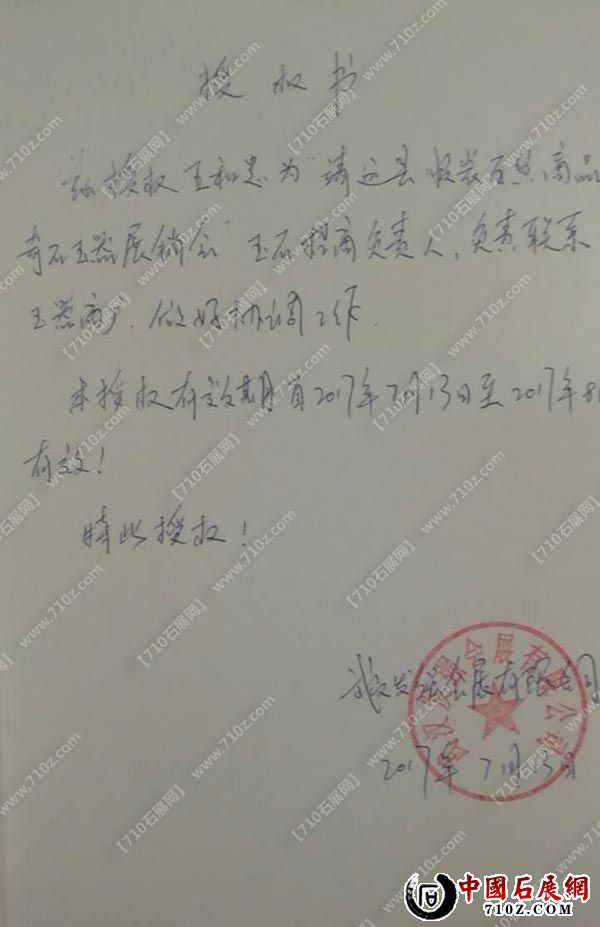 授权书
兹授权王和忠为“靖远县服装百货商品
奇石玉器展销会”玉石招商负责人,负责联系
玉器商户.做好协调工作.
本授权有效期自2017年7月13日至2017年8月
有效!
特此授权!
武汉发强会展有限公司
2017年7月13日
中國石展網
710Z.COM
【710石展网】www.710z.com